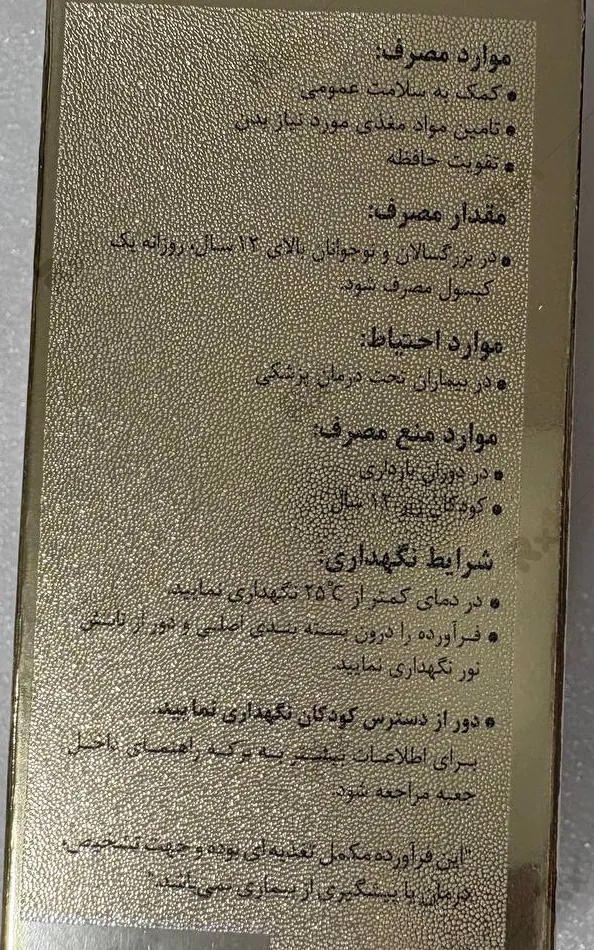 موارد مصرف:
● کمک به سلامت عمومی
● تامین مواد مغذی مورد نیاز بدن
● تقویت حافظه
مقدار مصرف:
● در بزرگسالان و نوجوانان بالای ۱۲ سال، روزانه یک
کپسول مصرف شود.
موارد احتیاط:
● در بیماران تحت درمان پزشکی
موارد منع مصرف:
● در دوران بارداری
● کودکان زیر ۱۲ سال
شرایط نگهداری:
● در دمای کمتر از ۲۵°C نگهداری نمایید.
● فرآورده را درون بسته بندی اصلی و دور از تابش
نور نگهداری نمایید.
● دور از دسترس کودکان نگهداری نمایید.
برای اطلاعات بیشتر به برگه راهنمای داخل
جعبه مراجعه شود.
"این فرآورده مکمل تغذیه‌ای بوده و جهت تشخیص،
درمان یا پیشگیری از بیماری نمی‌باشد."